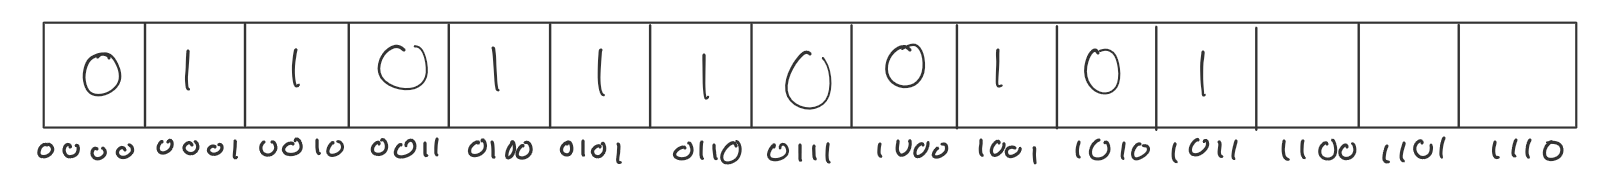 0 1 1 0 1 1 1 0 0 1 0 1
0000 0001 0010 0011 0100 0101 0110 0111 1000 1001 1010 1011 1100 1101 1110